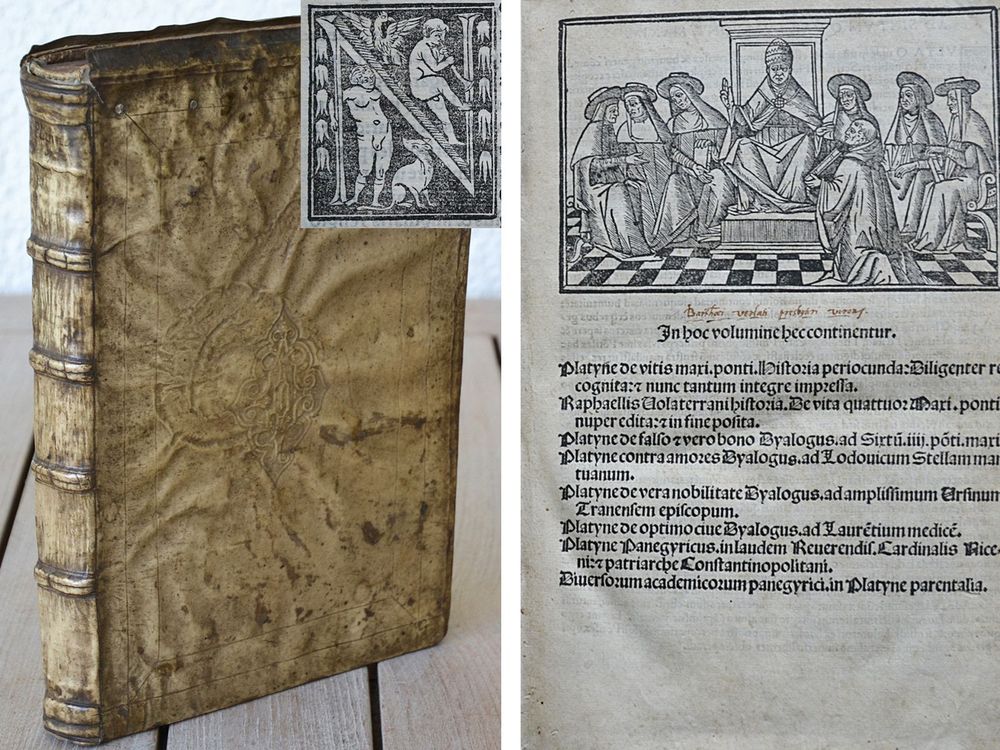 N
In hoc volumine hec continentur.
Platyne de vitis maxi. ponti. Historia periocunda: Diligenter re
cognita: ⁊ nunc tantum integre impressa.
Raphaellis Uolaterrani historia. De vita quattuor Maxi. ponti
nuper edita: ⁊ in fine posita.
Platyne de falso ⁊ vero bono Dyalogus. ad Sixtū. iiii. pōti. maxi
Platyne contra amores Dyalogus. ad Lodouicum Stellam man
tuanum.
Platyne de vera nobilitate Dyalogus. ad amplissimum Ursinum
Tranensem episcopum.
Platyne de optimo ciue Dyalogus. ad Laurētium medicē.
Platyne Panegyricus. in laudem Reuerendis. Cardinalis Nice-
ni: ⁊ patriarche Constantinopolitani.
Diuersorum academicorum panegyrici. in Platyne parentalia.